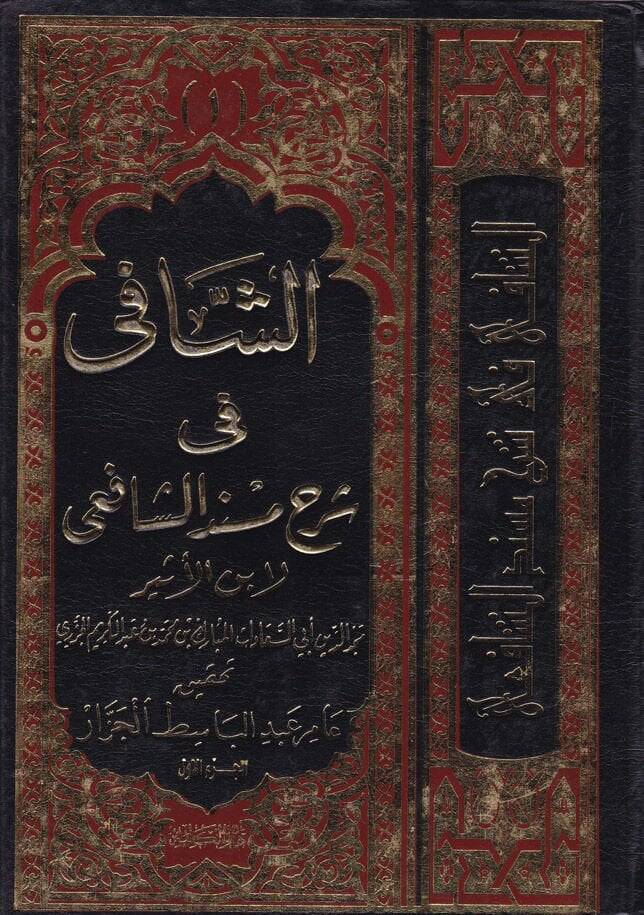 الشَّافي
في
شرح مسند الشافعي
لابن الأثير
مجد الدين أبي السعادات المبارك بن محمد بن عبد الكريم الجزري
تحقيق
عامر عبد الباسط الجزار
الجزء الأول
الشافي في شرح مسند الشافعي